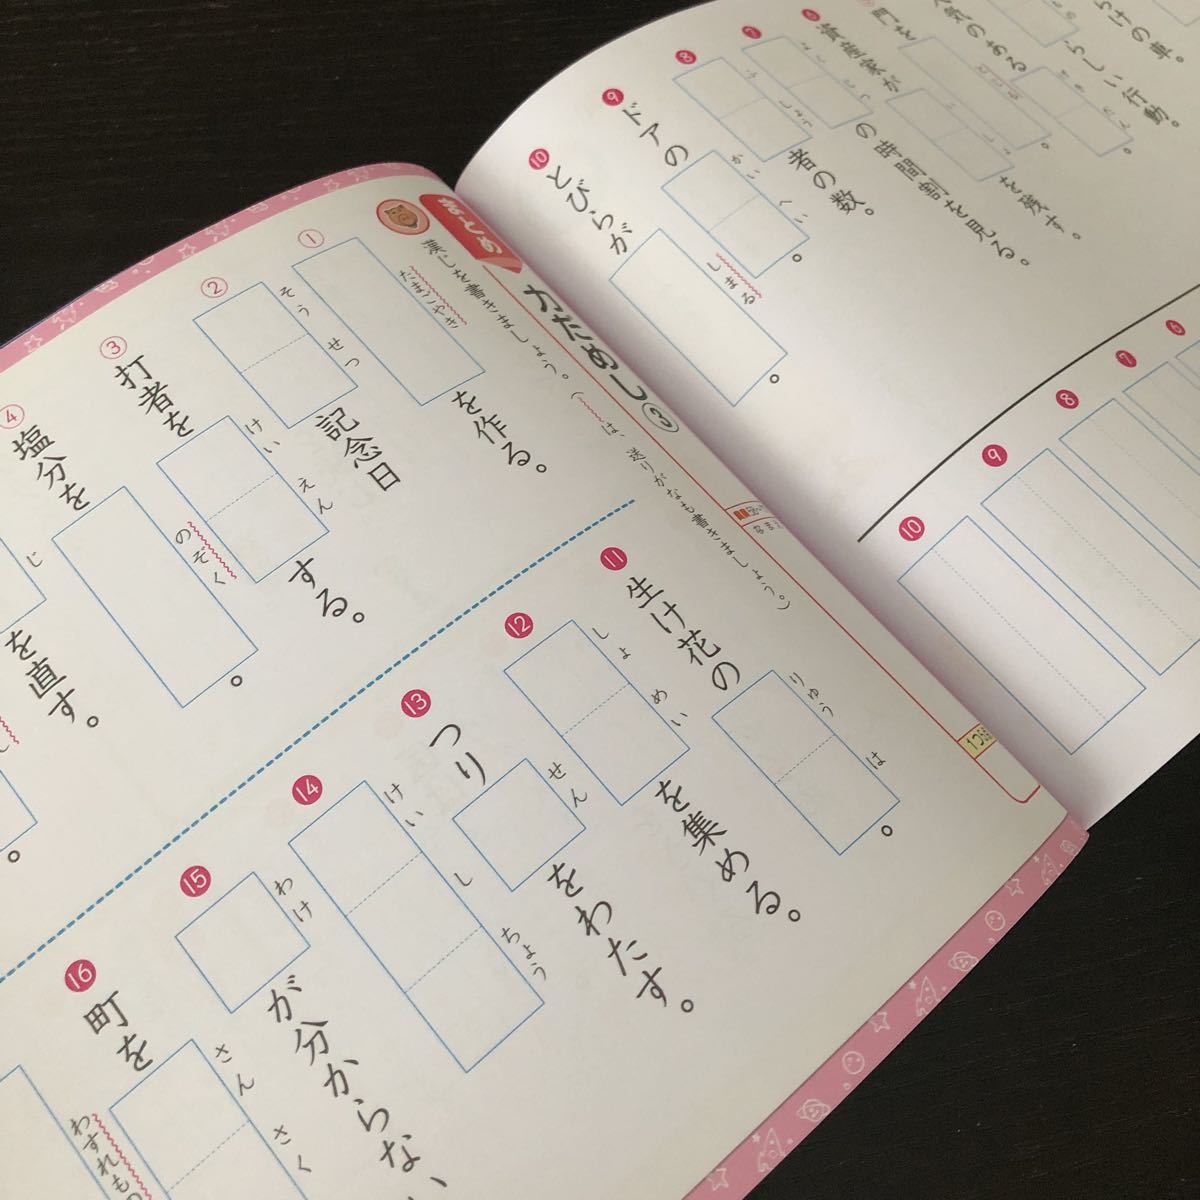 まとめ
力だめし③
漢じを書きましょう。(〰は、送りがなも書きましょう。)
① たまごやき を作る。
② そうせつ 記念日
③ 打者を けいえん する。
④ 塩分を のぞく 。
じ を直す。
⑪ 生け花の りゅうは 。
⑫ しょめい を集める。
⑬ つり せん をわたす。
⑭ けいしちょう
⑮ わけ が分からない
⑯ 町を さんさく
わすれもの
らけの車。
らしい行動。
人気のある
門を
を残す。
⑥ 資産家が
の時間割を見る。
⑦
⑧ ふしょう 者の数。
⑨ ドアの かいへい 。
⑩ とびらが しまる 。
⑥
⑦
⑧
⑨
⑩